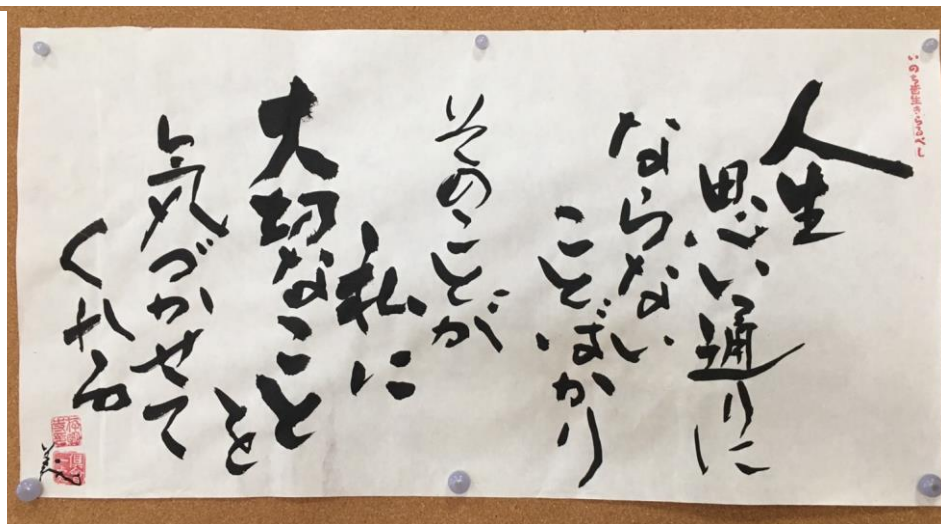 人生
思い通りに
ならない
ことばかり
そのことが
私に
大切なこと
を
気づかせて
くれる